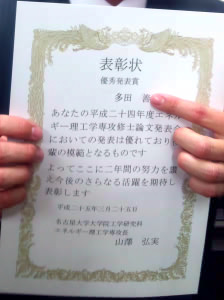 表彰状
優秀発表賞
多田
あなたの平成二十四年度エネル
ギー理工学専攻修士論文発表会
においての発表は優れており
の模範となるものです
よってここに二年間の努力を讃
え今後のさらなる活躍を期待し
表彰します
平成二十五年三月二十五日
名古屋大学大学院工学研究科
エネルギー理工学専攻長
山澤 弘実